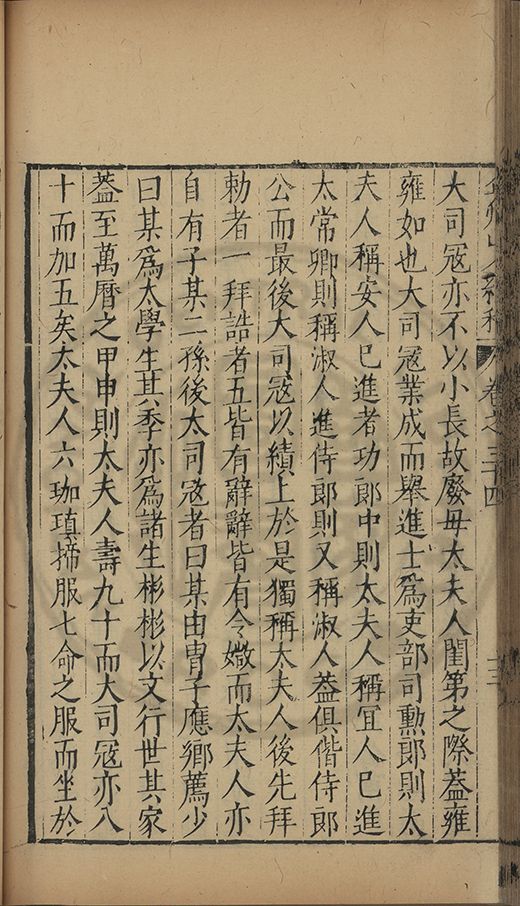 弇州山人續稿 卷之三十四 十三
大司寇亦不以小長故廢毋太夫人閨第之際蓋雍
雍如也大司寇業成而舉進士爲吏部司勳郎則太
夫人稱安人已進考功郎中則太夫人稱宜人已進
太常卿則稱淑人進侍郎則又稱淑人葢俱偕侍郎
公而最後大司寇以績上於是獨稱太夫人後先拜
勅者一拜誥者五皆有辭辭皆有令媺而太夫人亦
自有子某二孫後太司寇者曰某由胄子應鄉薦少
曰某爲太學生其季亦爲諸生彬彬以文行世其家
葢至萬曆之甲申則太夫人壽九十而大司寇亦八
十而加五矣太夫人六珈瑱揥服七命之服而坐於